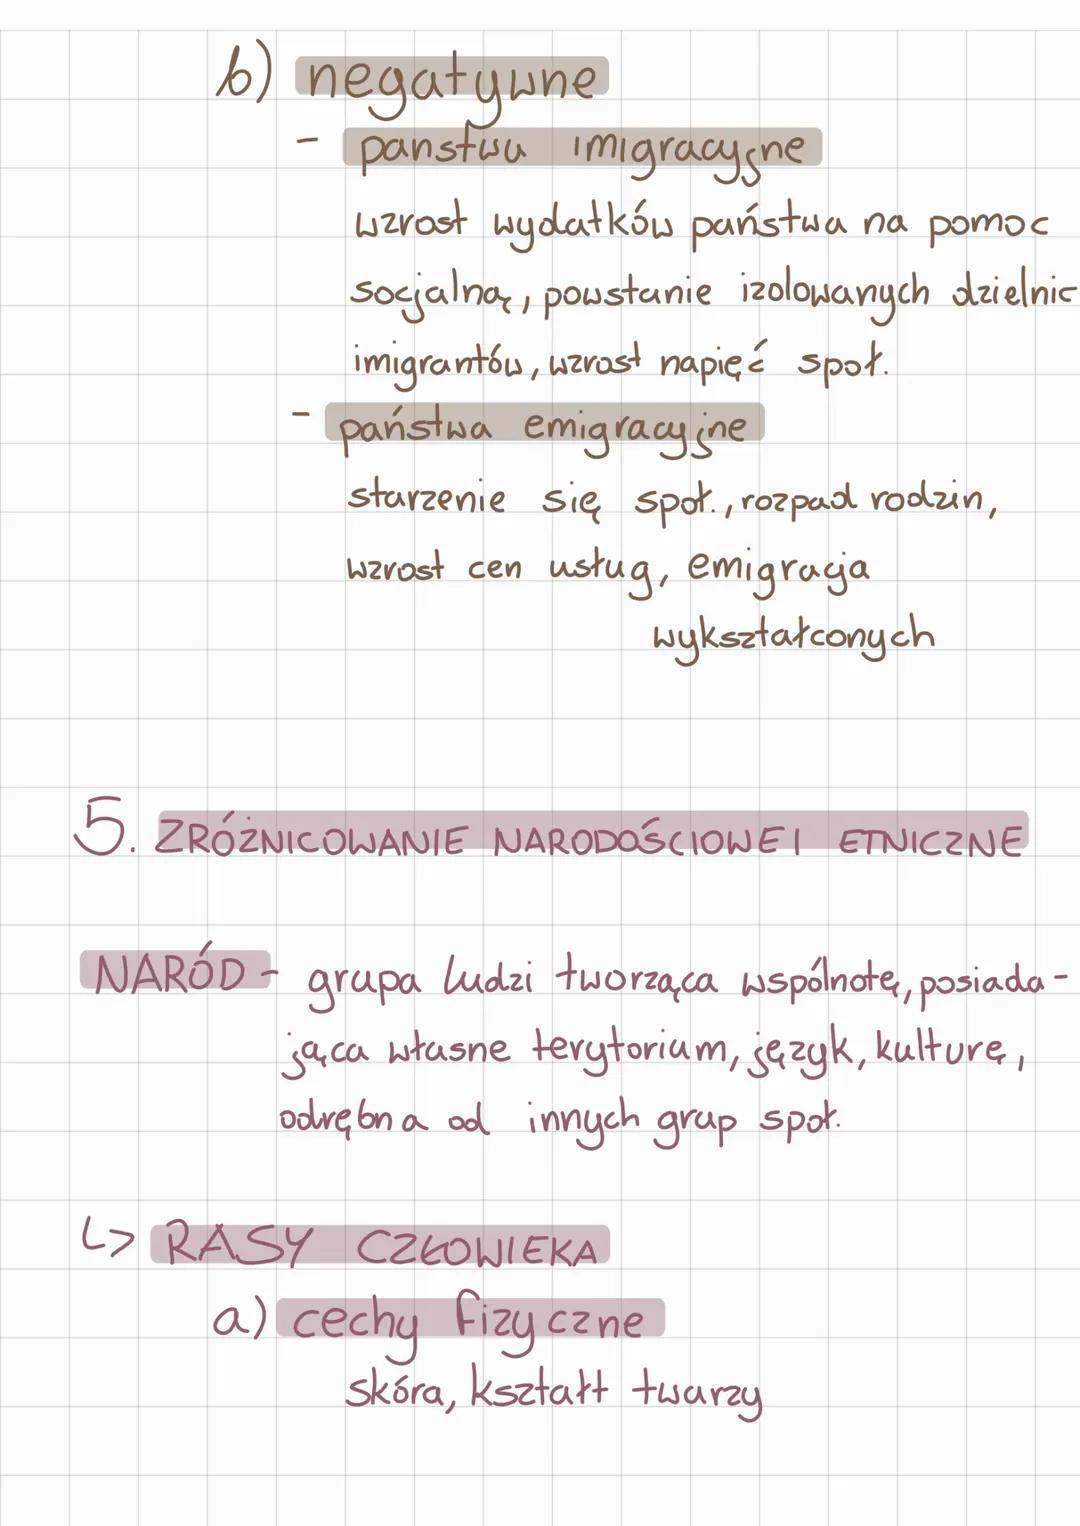 b) negatywne
- panstwa imigracyjne
wzrost wydatków państwa na pomoc
socjalną, powstanie izolowanych dzielnic
imigrantów, wzrost napięć społ.
- państwa emigracyjne
starzenie się społ., rozpad rodzin,
wzrost cen usług, emigracja
wykształconych
5. ZRÓŻNICOWANIE NARODOŚCIOWE I ETNICZNE
NARÓD - grupa ludzi tworząca wspólnotę, posiada-
jąca własne terytorium, język, kulturę,
odrębna od innych grup społ.
↳ RASY CZŁOWIEKA
a) cechy fizyczne
skóra, kształt twarzy